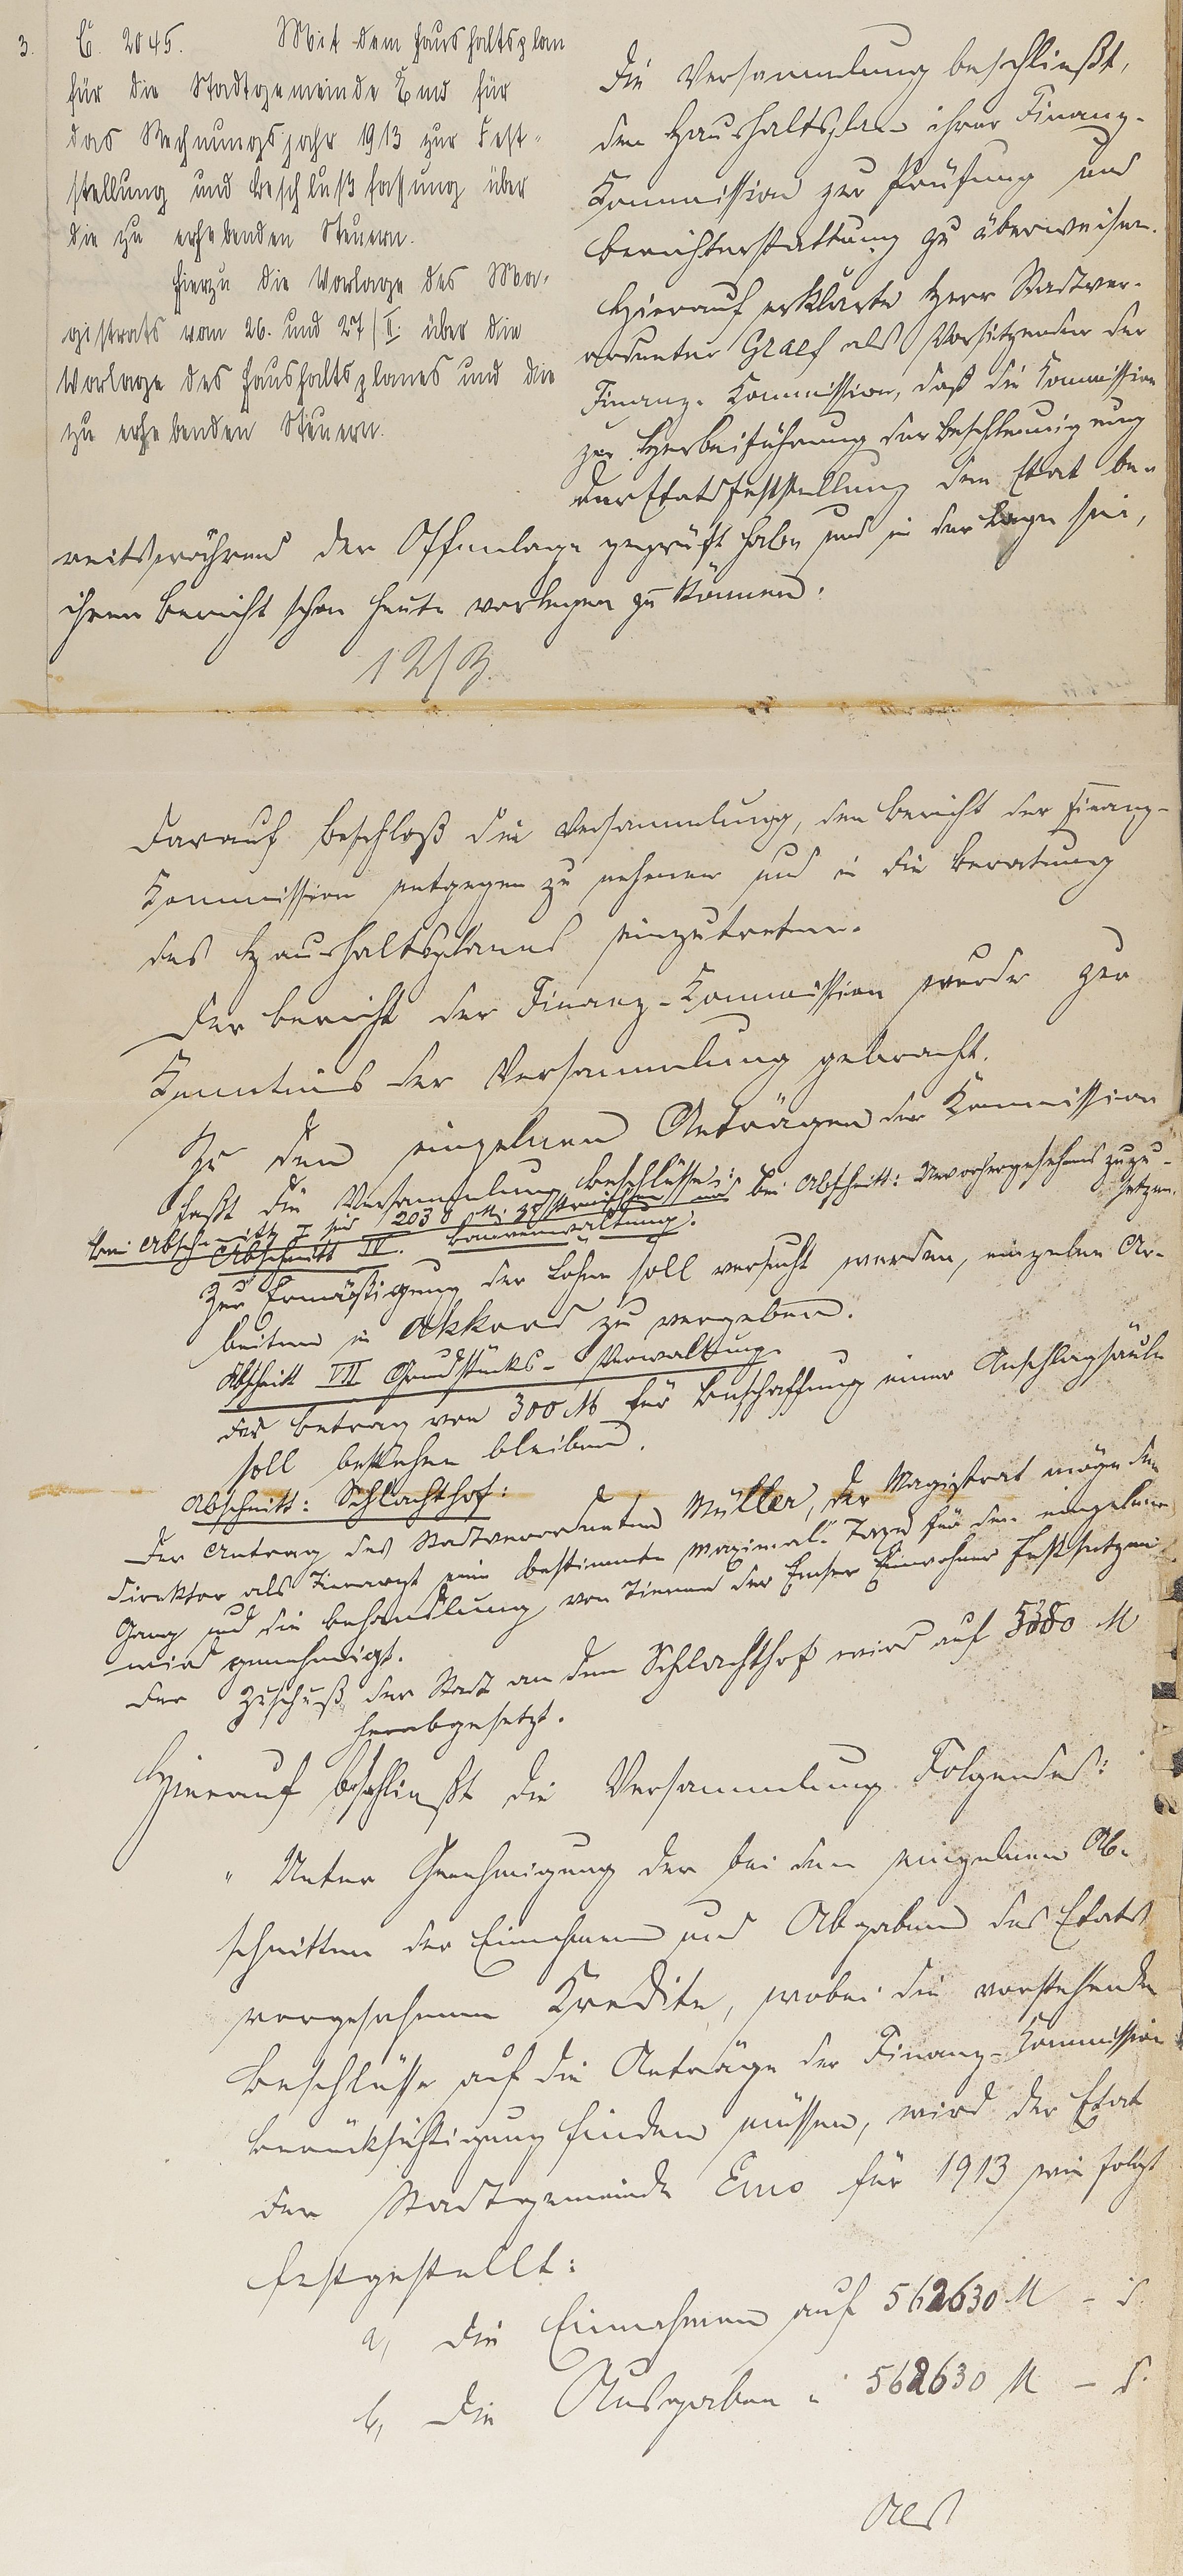 3.
C. 2045. Mit dem Haushaltsplan
für die Stadtgemeinde Ems für
das Rechnungsjahr 1913 zur Fest-
stellung und Beschlußfassung über
die zu erhebenden Steuern.
Hierzu die Vorlage des Ma-
gistrats vom 26. und 27/II. über die
Vorlage des Haushaltsplanes und die
zu erhebenden Steuern.
Die Versammlung beschließt,
den Haushaltsplan ihrer Finanz-
Kommission zur Prüfung und
Berichterstattung zu überweisen.
Hierauf erklärte Herr Stadtver-
ordneter Graef als Vorsitzender der
Finanz-Kommission, daß die Kommission
zur Herbeiführung der Beschleunigung
der Etatsfeststellung den Etat be-
reits während der Offenlage geprüft habe und in der Lage sei,
ihren Bericht schon heute vorlegen zu können.
Darauf beschloß die Versammlung, den Bericht der Finanz-
Kommission entgegen zu nehmen und in die Beratung
des Haushaltsplanes einzutreten.
Der Bericht der Finanz-Kommission wurde zur
Kenntnis der Versammlung gebracht.
Zu den einzelnen Anträgen der Kommission
faßt die Versammlung Beschlüsse:
Bei Abschnitt I sind 2030 M. zu streichen und bei Abschnitt: Unvorhergesehenes zuzu-
setzen.
Abschnitt IV. Bauverwaltung.
Zur Ermäßigung der Löhne soll versucht werden, einzelne Ar-
beiten in Akkord zu vergeben.
Abschnitt VII Grundstücks-Verwaltung.
Der Betrag von 300 M für Beschaffung einer Anschlagsäule
soll bestehen bleiben.
Abschnitt: Schlachthof:
Der Antrag des Stadtverordneten Müller, der Magistrat möge den
Direktor als Tierarzt eine bestimmte Maximal-Taxe für den einzelnen
Gang und die Behandlung von Tieren der Emser Einwohner festsetzen
wird genehmigt.
Der Zuschuß der Stadt an den Schlachthof wird auf M
herabgesetzt.
Hierauf beschließt die Versammlung Folgendes:
"Unter Genehmigung der bei den einzelnen Ab-
schnitten der Einnahmen und Ausgaben des Etats
vorgesehenen Kredite, wobei die vorstehenden
Beschlüsse auf die Anträge der Finanz-Kommission
Berücksichtigung finden müssen, wird der Etat
der Stadtgemeinde Ems für 1913 wie folgt
festgestellt:
a, die Einnahmen auf 562630 M - d.
b, die Ausgaben " 562630 M - d.